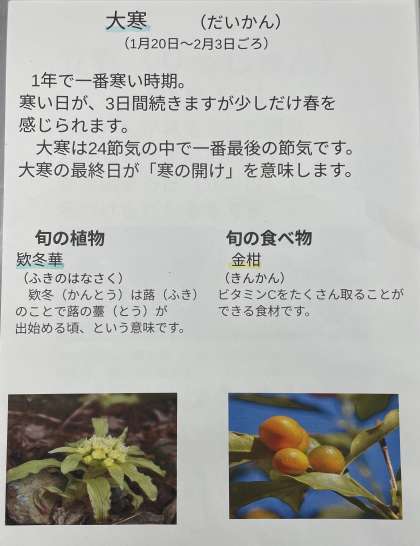 大寒　（だいかん）
（1月20日～2月3日ごろ）
1年で一番寒い時期。
寒い日が、3日間続きますが少しだけ春を
感じられます。
大寒は24節気の中で一番最後の節気です。
大寒の最終日が「寒の開け」を意味します。
旬の植物
欵冬華
（ふきのはなさく）
欵冬（かんとう）は蕗（ふき）
のことで蕗の薹（とう）が
出始める頃、という意味です。
旬の食べ物
金柑
（きんかん）
ビタミンCをたくさん取ることが
できる食材です。